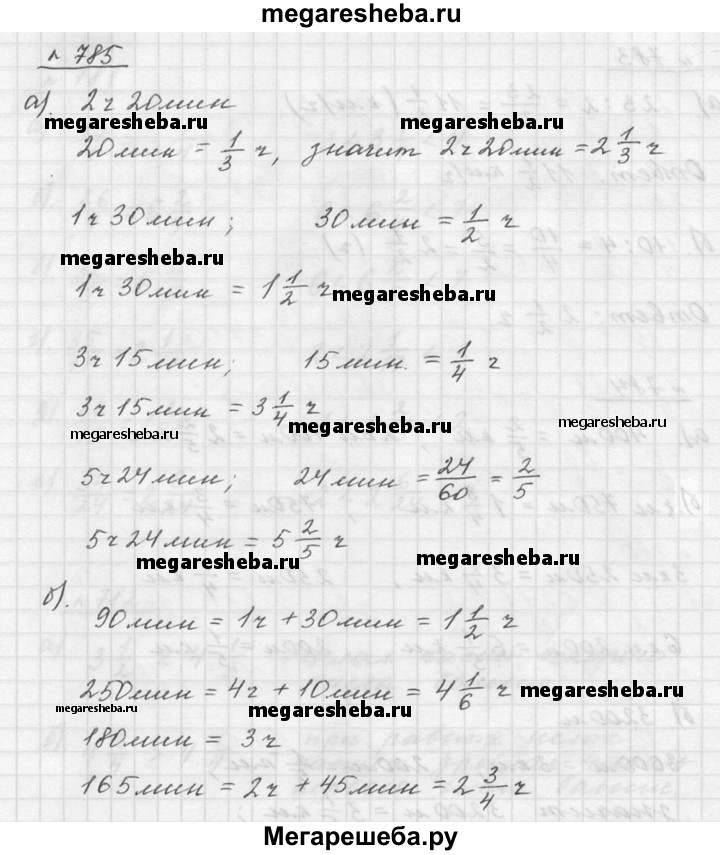 megaresheba.ru
№ 785
а). 2ч 20мин
megaresheba.ru megaresheba.ru
20мин = 1/3 ч, значит 2ч 20мин = 2 1/3 ч
1ч 30мин; 30мин = 1/2 ч
megaresheba.ru
1ч 30мин = 1 1/2 ч
megaresheba.ru
3ч 15мин; 15мин. = 1/4 ч
3ч 15мин = 3 1/4 ч
megaresheba.ru megaresheba.ru megaresheba.ru
5ч 24мин; 24мин = 24/60 = 2/5
5ч 24мин = 5 2/5 ч
megaresheba.ru megaresheba.ru
б).
90мин = 1ч + 30мин = 1 1/2 ч
250мин = 4ч + 10мин = 4 1/6 ч
megaresheba.ru megaresheba.ru megaresheba.ru
180мин = 3ч
165мин = 2ч + 45мин = 2 3/4 ч
Мегарешеба.ру